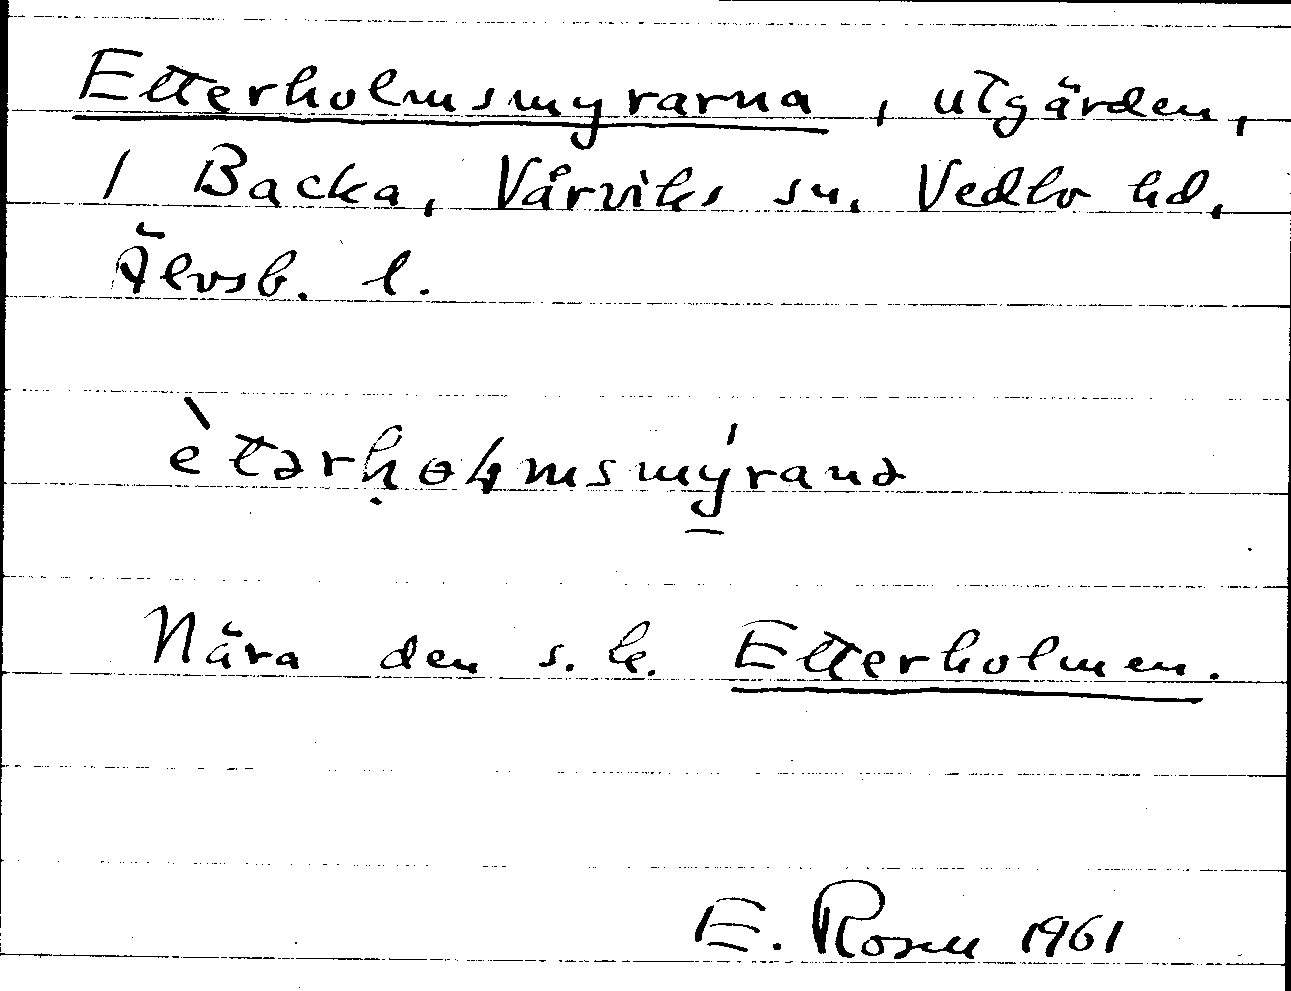 Etterholmsmyrarna, utgärden,
1 Backa, Vårviks sn. Vedbo hd,
Älvsb. l.
ètərḥoɫmsmýranə
Nära den s.k. Etterholmen.
E. Rosen 1961